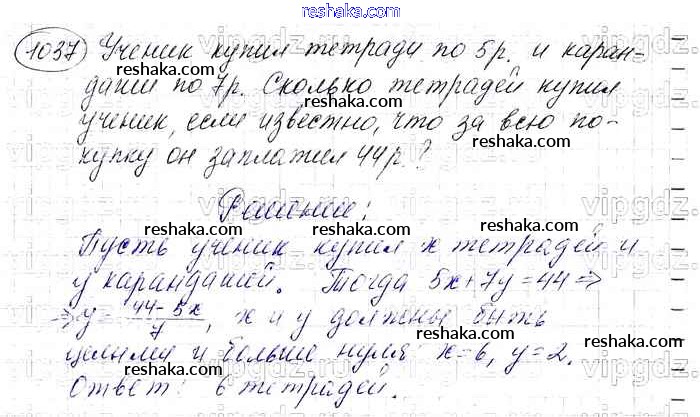 reshaka.ru
1037 Ученик купил тетради по 5р. и каран-
reshaka.ru
даши по 7р. Сколько тетрадей купил
ученик, если известно, что за всю по-
reshaka.ru reshaka.ru
купку он заплатил 44р.?
Решение:
reshaka.ru reshaka.ru
Пусть ученик купил x тетрадей и
y карандашей. Тогда 5x+7y=44⇒
reshaka.ru
⇒y=\frac{44-5x}{7}, x и y должны быть
reshaka.ru
целыми и больше нуля x=6, y=2.
Ответ: 6 тетрадей.
reshaka.ru
vipgdz.ru